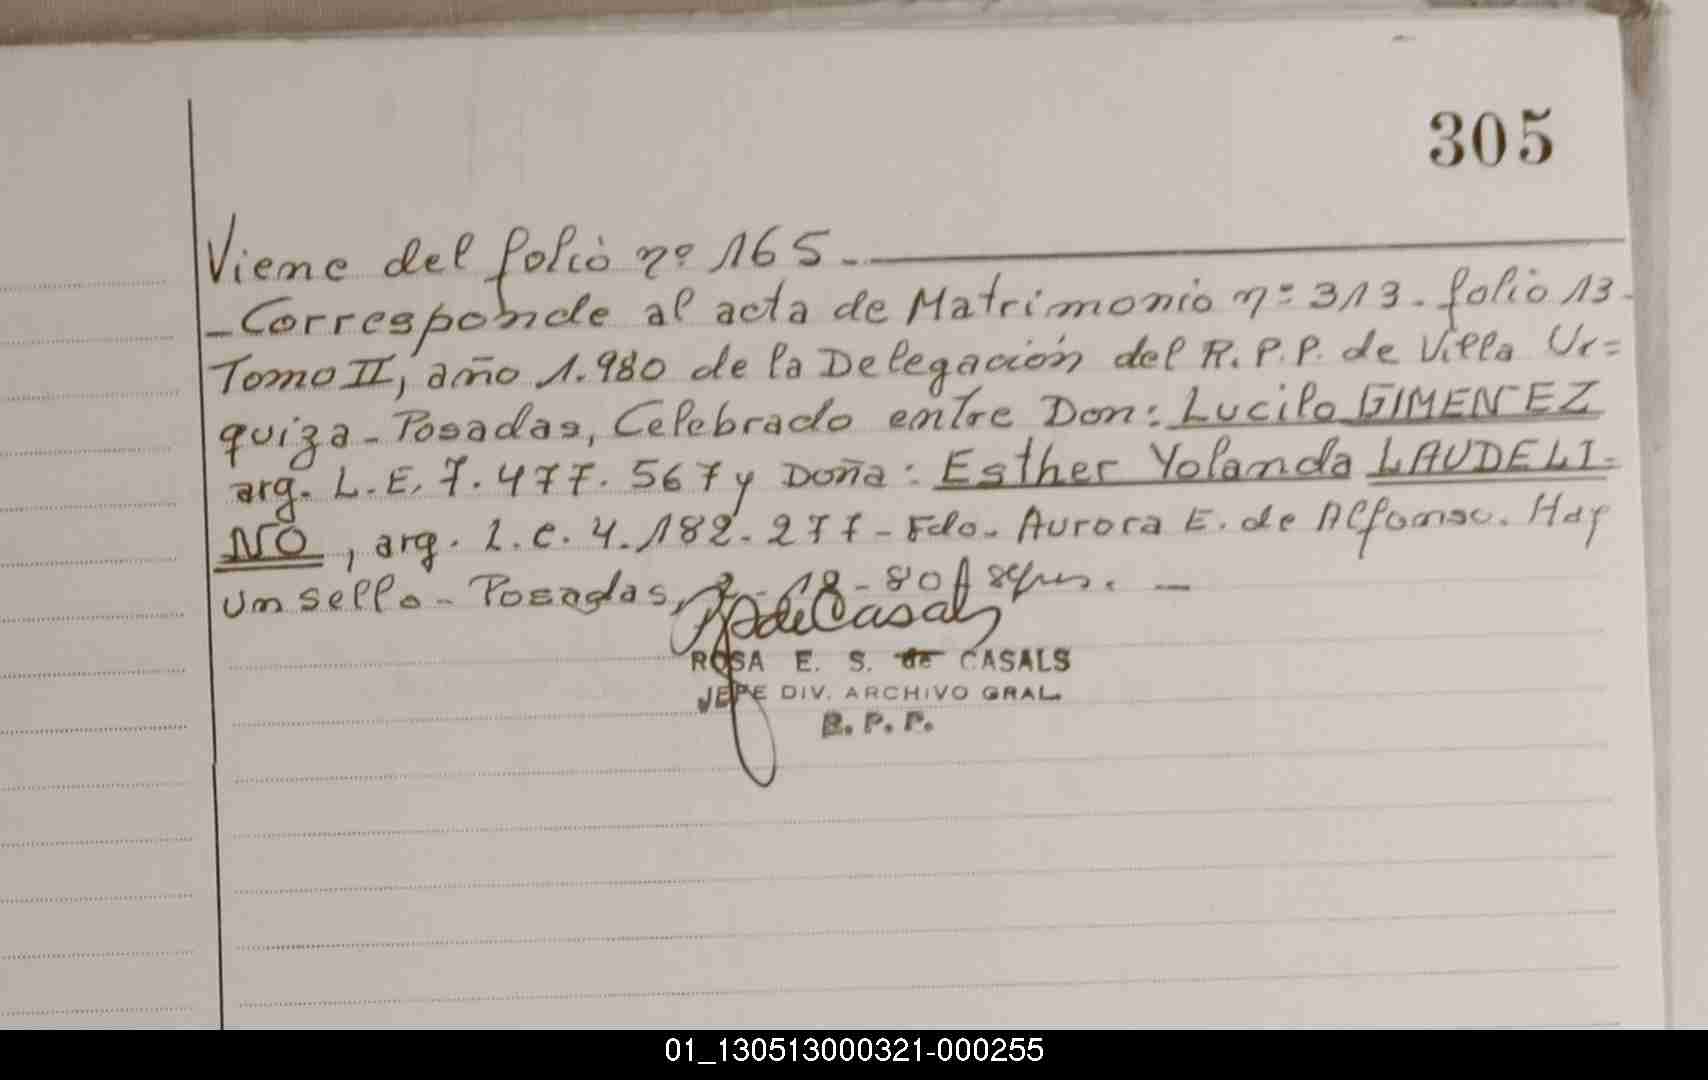 305
Viene del folio nº 165.
- Corresponde al acta de Matrimonio nº 313. folio 13-
Tomo II, año 1.980 de la Delegación del R.P.P. de Villa Ur=
quiza - Posadas, Celebrado entre Don: Lucilo GIMENEZ
arg. L.E. 7.477.567 y Doña: Esther Yolanda LAUDELI-
NO, arg. L.C. 4.182.277 - Fdo. Aurora E. de Alfonso. Hay
un sello - Posadas,
ROSA E. S. de CASALS
JEFE DIV. ARCHIVO GRAL.
R. P. P.
01_130513000321-000255